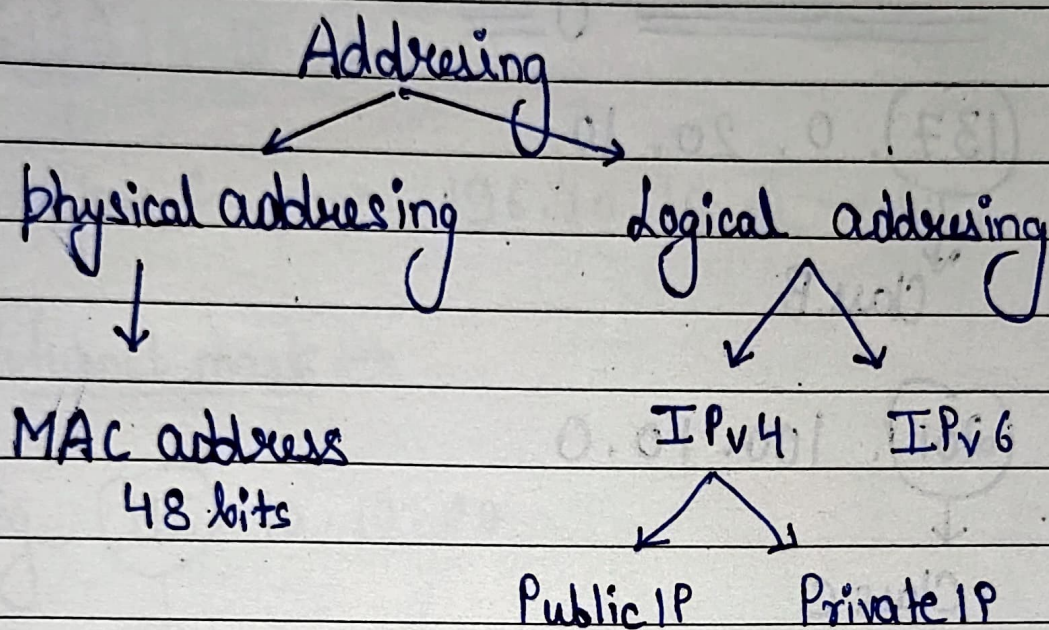 Addresing
physical addresing Logical addresing
MAC address IPv4 IPv6
48 bits
Public IP Private IP